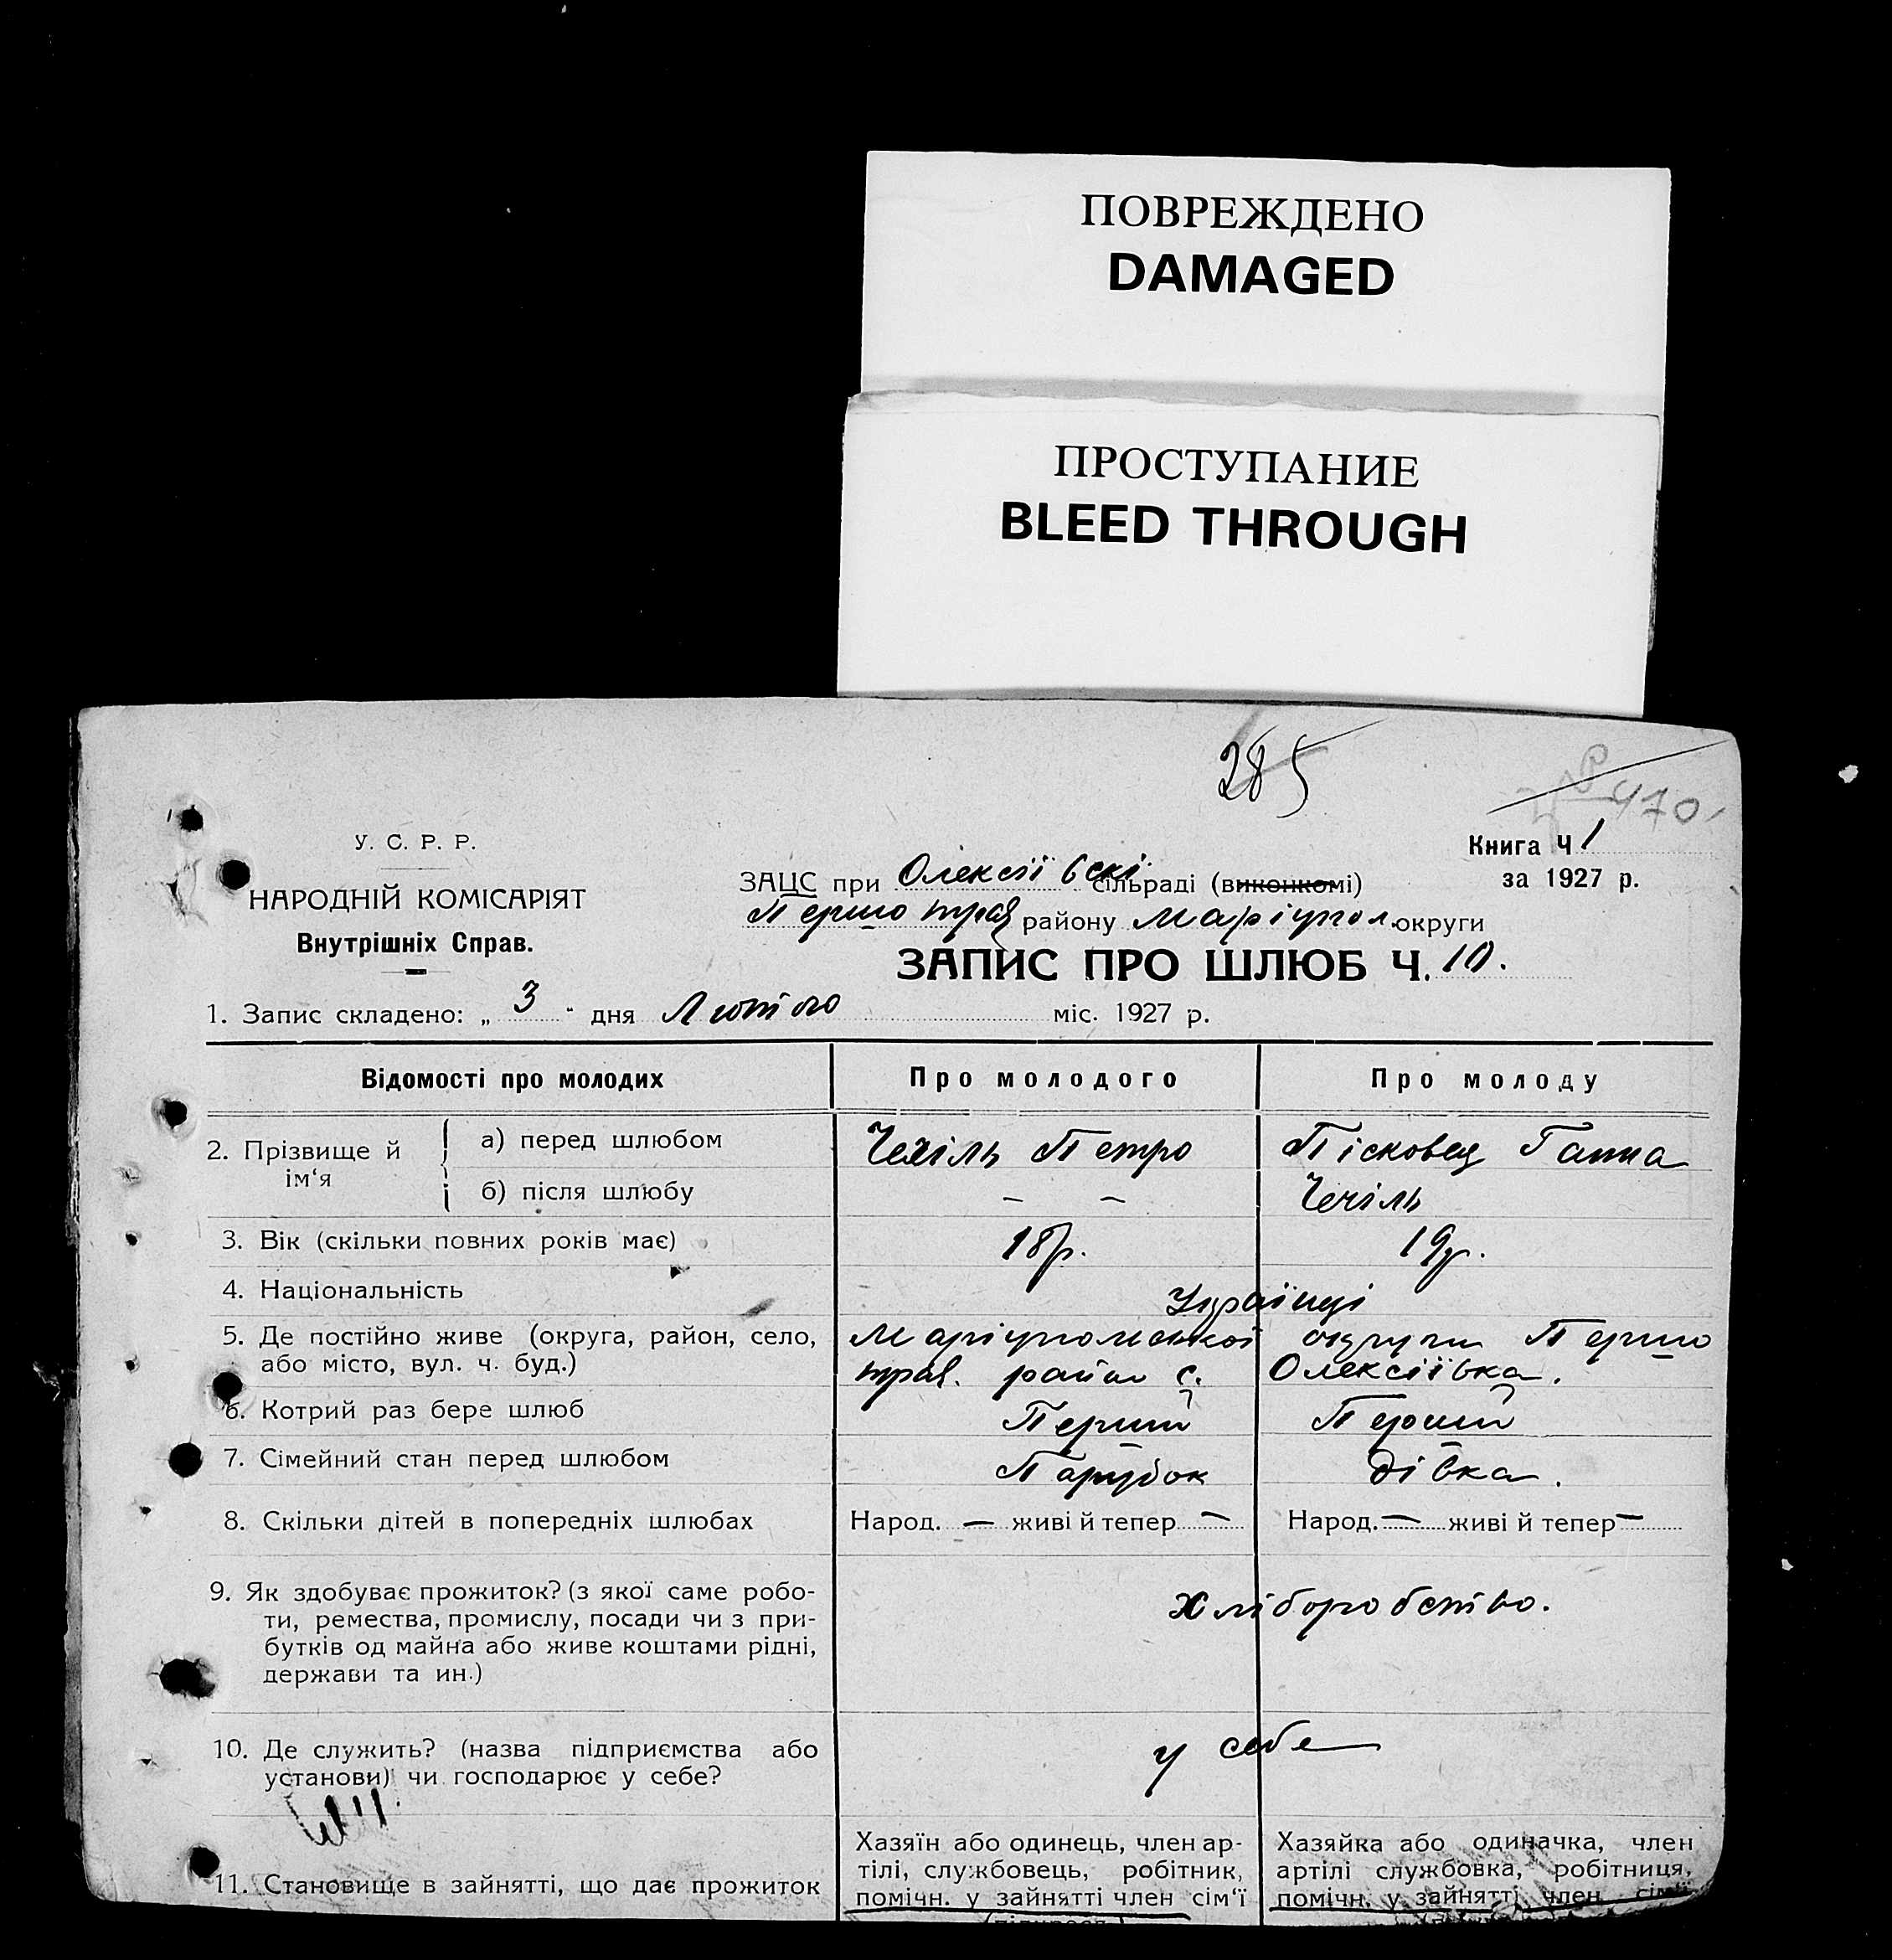 ПОВРЕЖДЕНО
DAMAGED
ПРОСТУПАНИЕ
BLEED THROUGH
285
470
У. С. Р. Р.
НАРОДНІЙ КОМІСАРІЯТ
Внутрішніх Справ.
Книга Ч 1
за 1927 р.
ЗАЦС при Олексіївскі сільраді (виконкомі)
Першо трав району Маріупол. округи
ЗАПИС ПРО ШЛЮБ Ч. 10.
1. Запис складено: „ 3 " дня Лютого міс. 1927 р.
Відомості про молодих Про молодого Про молоду
2. Прізвище й ім'я
а) перед шлюбом Чечіль Петро Пісковец Ганна
б) після шлюбу – – Чечіль
3. Вік (скільки повних років має) 18 р. 19 р.
4. Національність Українці
5. Де постійно живе (округа, район, село, Маріупольської округи Першо
або місто, вул. ч. буд.) трав. район с. Олексіївка.
6. Котрий раз бере шлюб Перший Перший
7. Сімейний стан перед шлюбом Парубок дівка.
8. Скільки дітей в попередніх шлюбах Народ. — живі й тепер — Народ. — живі й тепер —
9. Як здобуває прожиток? (з якої саме робо-
ти, ремества, промислу, посади чи з при- Хліборобство.
бутків од майна або живе коштами рідні,
держави та ин.)
10. Де служить? (назва підприємства або у себе
установи) чи господарює у себе?
11. Становище в зайнятті, що дає прожиток
Хазяїн або одинець, член ар-
тілі, службовець, робітник,
помічн. у зайнятті член сім'ї
Хазяйка або одиначка, член
артілі службовка, робітниця,
помічн. у зайнятті член сім'ї